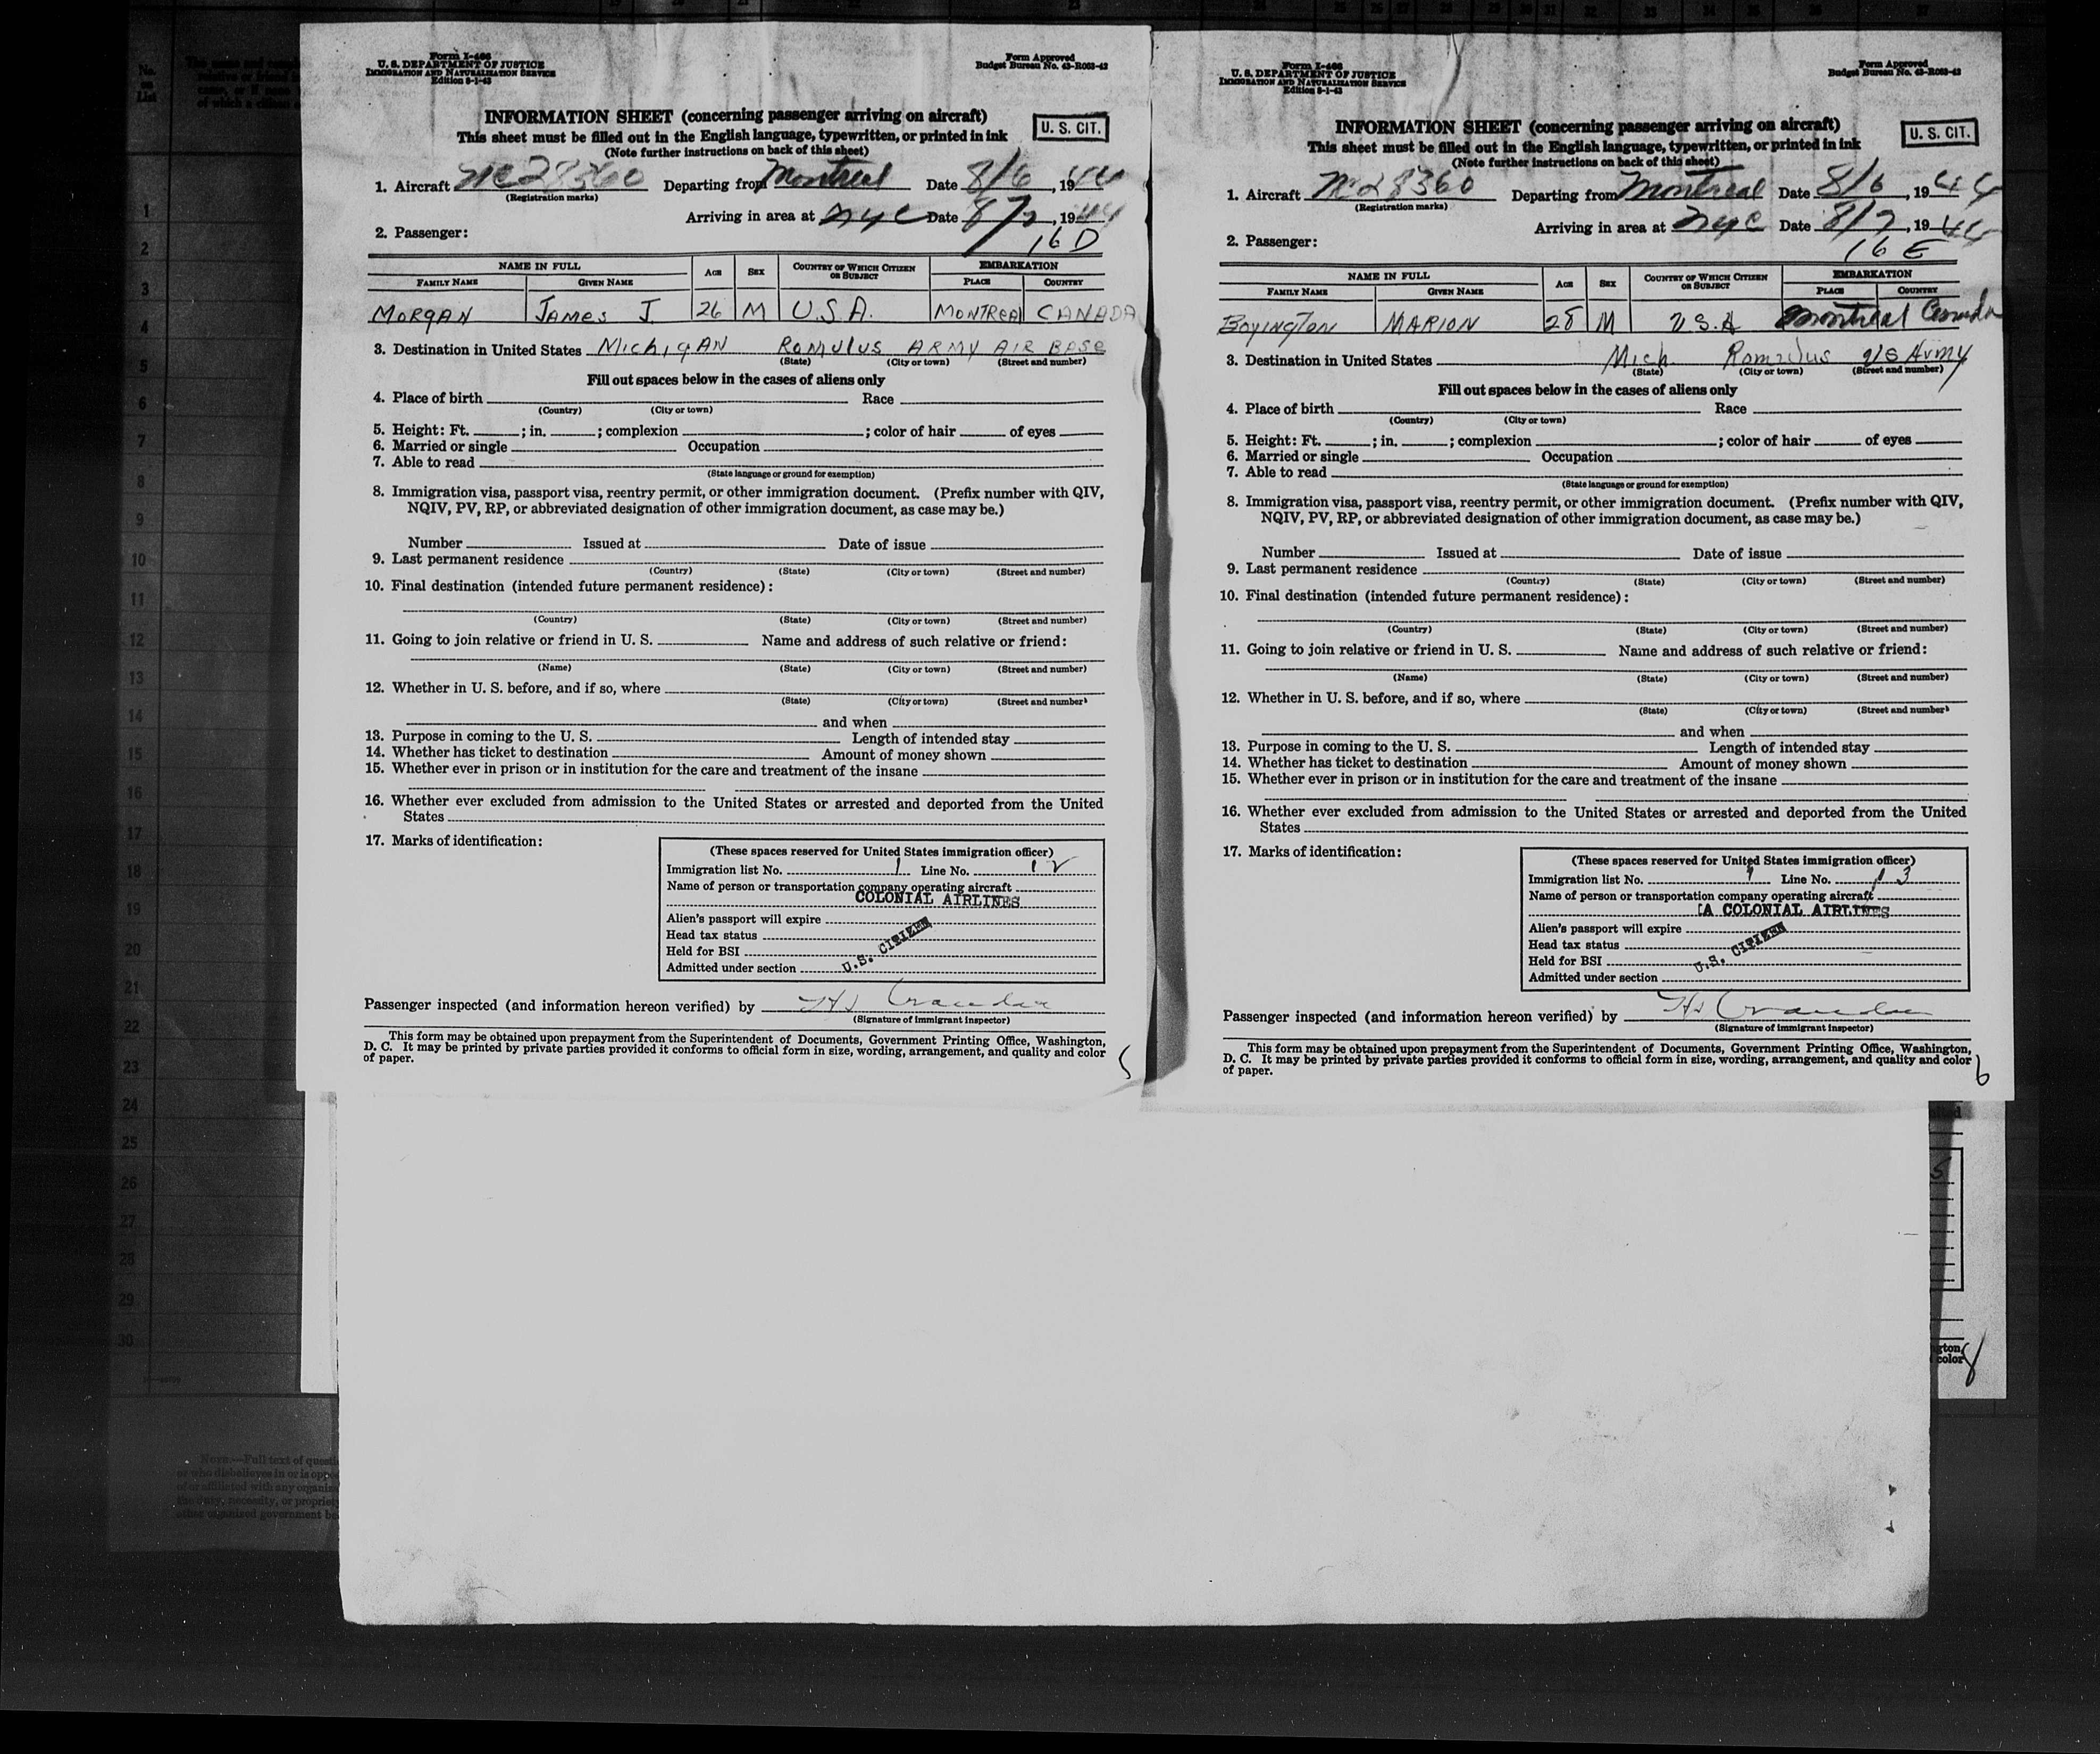 Form I-466
U. S. DEPARTMENT OF JUSTICE
IMMIGRATION AND NATURALIZATION SERVICE
Edition 8-1-43
Form Approved
Budget Bureau No. 43-R063-42
INFORMATION SHEET (concerning passenger arriving on aircraft)
This sheet must be filled out in the English language, typewritten, or printed in ink
(Note further instructions on back of this sheet)
U. S. CIT.
1. Aircraft NC28360 Departing from Montreal Date 8/6, 1944
(Registration marks)
Arriving in area at NYC Date 8/7, 1944
2. Passenger: 16 D
NAME IN FULL AGE SEX COUNTRY OF WHICH CITIZEN OR SUBJECT EMBARKATION
FAMILY NAME GIVEN NAME PLACE COUNTRY
MORGAN JAMES J. 26 M U.S.A. MONTREAL CANADA
3. Destination in United States MICHIGAN ROMULUS ARMY AIR BASE
(State) (City or town) (Street and number)
Fill out spaces below in the cases of aliens only
4. Place of birth Race
(Country) (City or town)
5. Height: Ft. ; in. ; complexion ; color of hair of eyes
6. Married or single Occupation
7. Able to read
(State language or ground for exemption)
8. Immigration visa, passport visa, reentry permit, or other immigration document. (Prefix number with QIV,
NQIV, PV, RP, or abbreviated designation of other immigration document, as case may be.)
Number Issued at Date of issue
9. Last permanent residence
(Country) (State) (City or town) (Street and number)
10. Final destination (intended future permanent residence):
(Country) (State) (City or town) (Street and number)
11. Going to join relative or friend in U. S. Name and address of such relative or friend:
(Name) (State) (City or town) (Street and number)
12. Whether in U. S. before, and if so, where
(State) (City or town) (Street and number)
and when
13. Purpose in coming to the U. S. Length of intended stay
14. Whether has ticket to destination Amount of money shown
15. Whether ever in prison or in institution for the care and treatment of the insane
16. Whether ever excluded from admission to the United States or arrested and deported from the United
States
17. Marks of identification:
(These spaces reserved for United States immigration officer)
Immigration list No. 1 Line No. 12
Name of person or transportation company operating aircraft
COLONIAL AIRLINES
Alien's passport will expire
Head tax status
Held for BSI
Admitted under section
U.S. CITIZEN
Passenger inspected (and information hereon verified) by
(Signature of immigrant inspector)
This form may be obtained upon prepayment from the Superintendent of Documents, Government Printing Office, Washington,
D. C. It may be printed by private parties provided it conforms to official form in size, wording, arrangement, and quality and color
of paper.
5
Form I-466
U. S. DEPARTMENT OF JUSTICE
IMMIGRATION AND NATURALIZATION SERVICE
Edition 8-1-43
Form Approved
Budget Bureau No. 43-R063-42
INFORMATION SHEET (concerning passenger arriving on aircraft)
This sheet must be filled out in the English language, typewritten, or printed in ink
(Note further instructions on back of this sheet)
U. S. CIT.
1. Aircraft NC28360 Departing from Montreal Date 8/6, 1944
(Registration marks)
Arriving in area at NYC Date 8/7, 1944
2. Passenger: 16 E
NAME IN FULL AGE SEX COUNTRY OF WHICH CITIZEN OR SUBJECT EMBARKATION
FAMILY NAME GIVEN NAME PLACE COUNTRY
BOYINGTON MARION 28 M U.S.A Montreal Canada
3. Destination in United States Mich Romulus US Army
(State) (City or town) (Street and number)
Fill out spaces below in the cases of aliens only
4. Place of birth Race
(Country) (City or town)
5. Height: Ft. ; in. ; complexion ; color of hair of eyes
6. Married or single Occupation
7. Able to read
(State language or ground for exemption)
8. Immigration visa, passport visa, reentry permit, or other immigration document. (Prefix number with QIV,
NQIV, PV, RP, or abbreviated designation of other immigration document, as case may be.)
Number Issued at Date of issue
9. Last permanent residence
(Country) (State) (City or town) (Street and number)
10. Final destination (intended future permanent residence):
(Country) (State) (City or town) (Street and number)
11. Going to join relative or friend in U. S. Name and address of such relative or friend:
(Name) (State) (City or town) (Street and number)
12. Whether in U. S. before, and if so, where
(State) (City or town) (Street and number)
and when
13. Purpose in coming to the U. S. Length of intended stay
14. Whether has ticket to destination Amount of money shown
15. Whether ever in prison or in institution for the care and treatment of the insane
16. Whether ever excluded from admission to the United States or arrested and deported from the United
States
17. Marks of identification:
(These spaces reserved for United States immigration officer)
Immigration list No. 1 Line No. 13
Name of person or transportation company operating aircraft
COLONIAL AIRLINES
Alien's passport will expire
Head tax status
Held for BSI
Admitted under section
U.S. CITIZEN
Passenger inspected (and information hereon verified) by
(Signature of immigrant inspector)
This form may be obtained upon prepayment from the Superintendent of Documents, Government Printing Office, Washington,
D. C. It may be printed by private parties provided it conforms to official form in size, wording, arrangement, and quality and color
of paper.
6